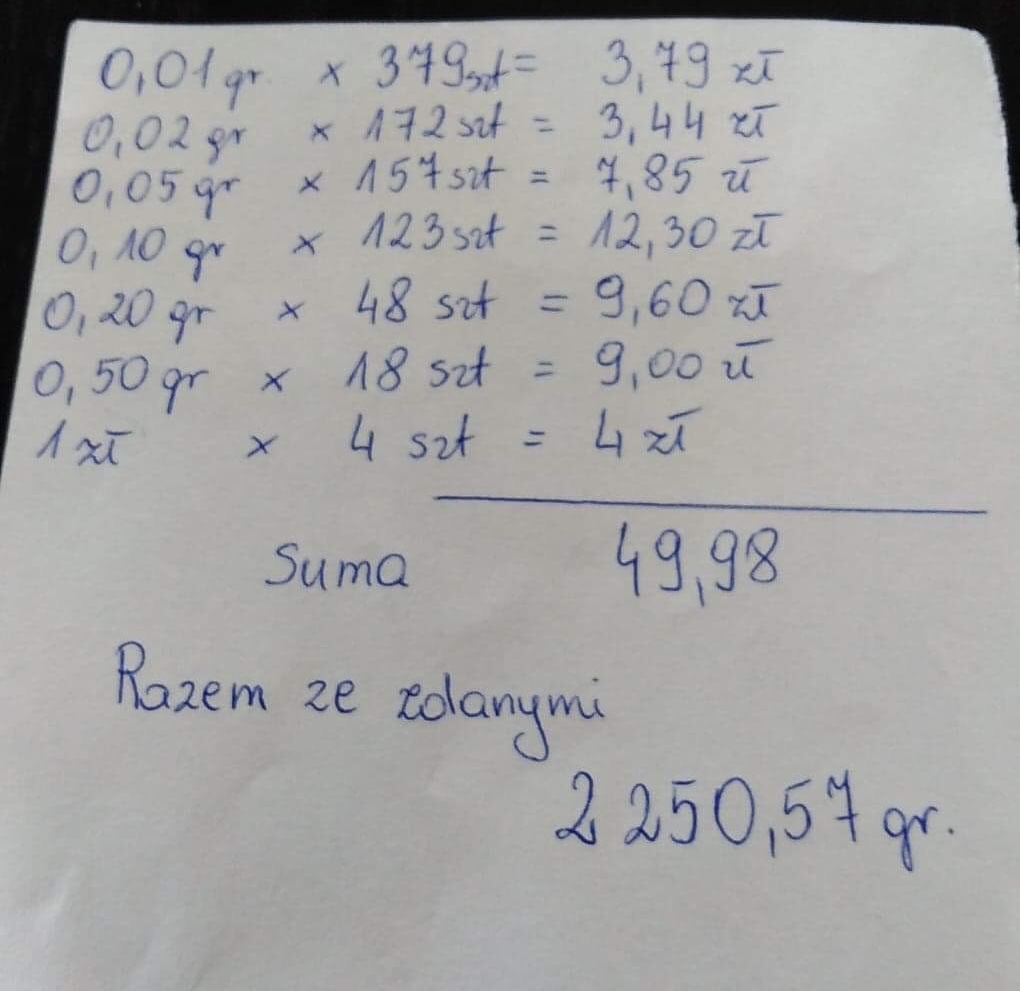 0,01 gr. x 379szt = 3,79 zł
0,02 gr x 172 szt = 3,44 zł
0,05 gr x 157 szt = 7,85 zł
0,10 gr x 123 szt = 12,30 zł
0,20 gr x 48 szt = 9,60 zł
0,50 gr x 18 szt = 9,00 zł
1 zł x 4 szt = 4 zł
Suma 49,98
Razem ze zdanymi
2 250,57 gr.